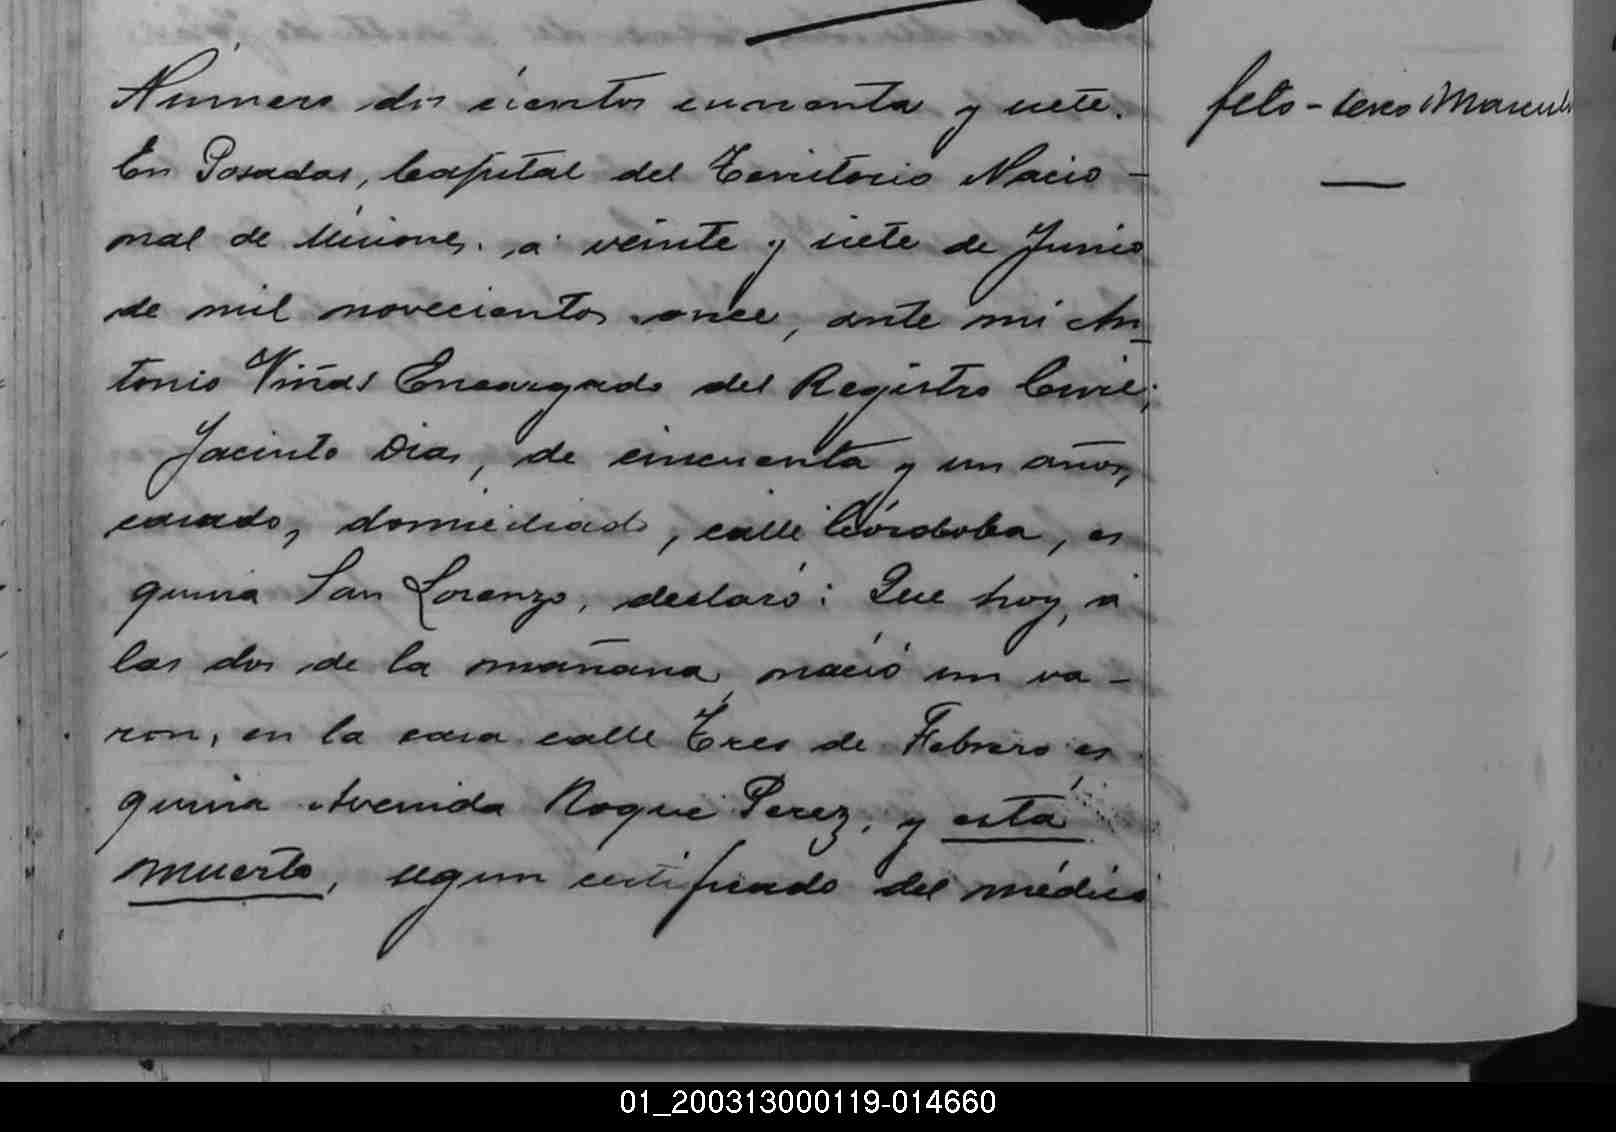 Número dos cientos cincuenta y siete.
En Posadas, Capital del Territorio Nacio-
nal de Misiones, á veinte y siete de Junio
de mil novecientos once, ante mi An-
tonio Viñas Encargado del Registro Civil;
Jacinto Dias, de cincuenta y un años,
casado, domiciliado, calle Córdoba, es
quina San Lorenzo, declaró: Que hoy, á
las dos de la mañana, nació un va-
ron, en la casa calle Tres de Febrero es
quina Avenida Roque Perez, y está
muerto, segun certificado del médico
feto - sexo Mascul
01_200313000119-014660